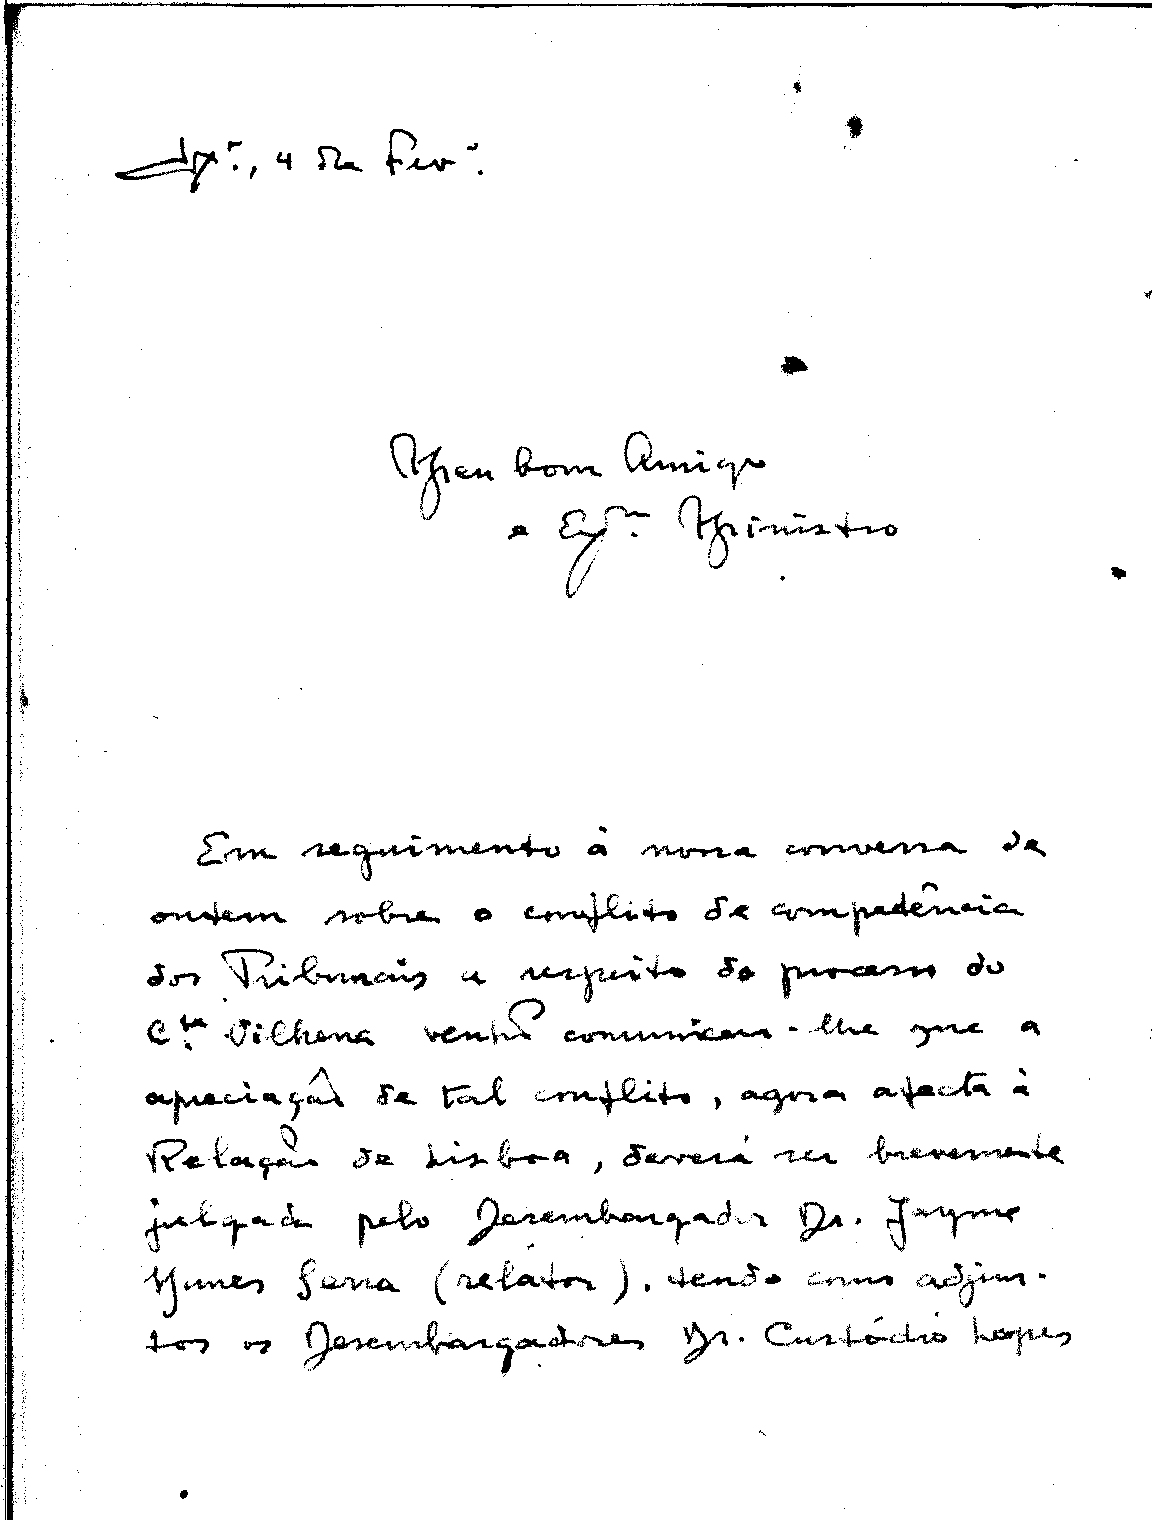 Lxª., 4 de Fevº.
Meu bom Amigo
e Exmº. Ministro
Em seguimento à nossa conversa de
ontem sobre o conflito de competência
dos Tribunais a respeito do processo do
C.te Vilhena venho comunicar-lhe que a
apreciação de tal conflito, agora afecta à
Relação de Lisboa, deverá ser brevemente
julgada pelo Desembargador Dr. Jayme
Nunes Serra (relator), tendo como adjun-
tos os Desembargadores Dr. Custódio Lopes